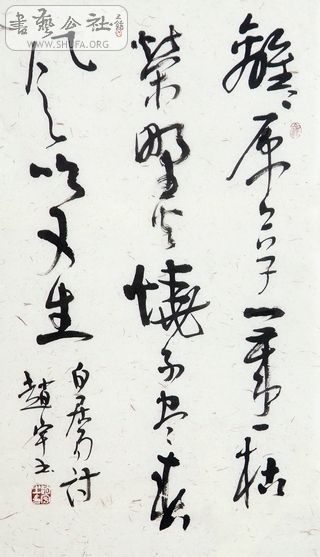 書藝公社
WWW.SHUFA.ORG
離〻原上草一歲一枯
榮野火燒不盡春
風吹又生
白居易詩
趙宇